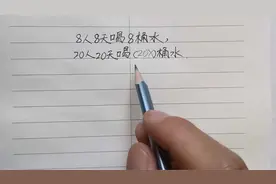 8人8天喝8桶水，
20人20天喝(20?)桶水